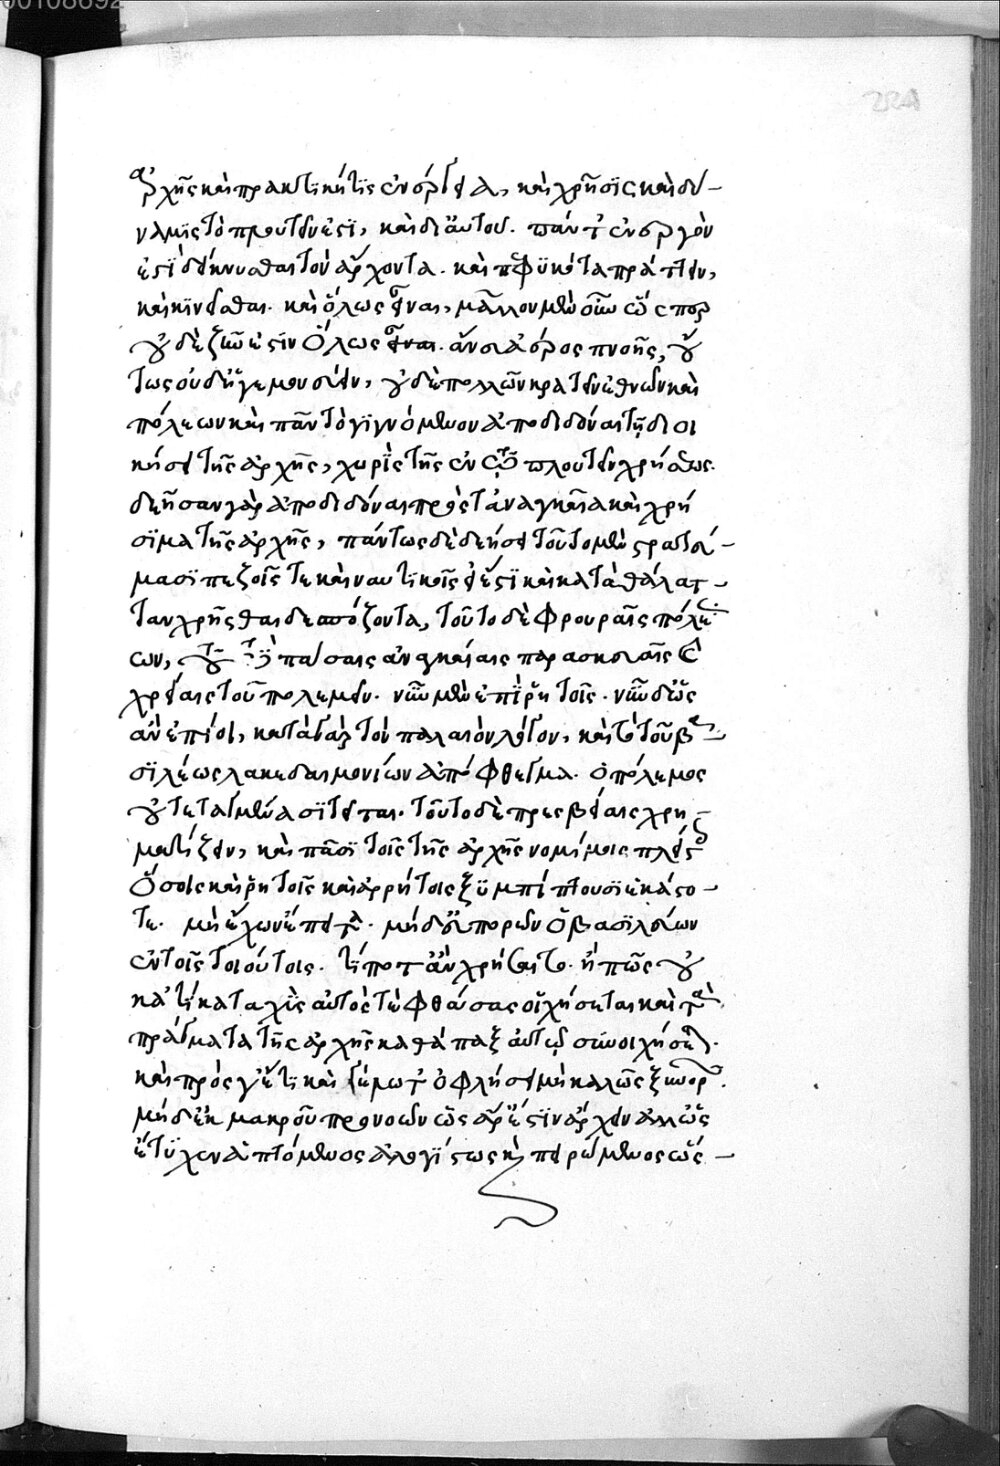 00108692
224
ἀρχῆς καὶ πρακτικήτις ἐνέργεια, καὶ χρῆσις καὶ δύ-
ναμις τὸ προυτεύεσι, καὶ δι αὐτοῦ. πάντ ἐνεργὸν
ἐστὶ δείκνυσθαι τὸν ἄρχοντα. καὶ πεφυκότα πράττειν,
καὶ κινεῖσθαι. καὶ ὅλως εἶναι, μᾶλλον μὲν οὖν ὥσπερ
οὐδὲ ζῶν ἐστὶν ὅλως εἶναι. ἄνευ ἀέρος πνοῆς, οὕ
τως οὐδ ἡγεμονεύειν, οὐδὲ πολλῶν κρατεῖν ἐθνῶν καὶ
πόλεων καὶ πᾶν τὸ γιγνόμενον ἀποδιδόναι τῇ διοι
κήσει τῆς ἀρχῆς, χωρὶς τῆς ἐν τῷ πλουτεῖν χρήσεως.
δεῆσαν γὰρ ἀποδιδόναι πρὸς τἀναγκαῖα καὶ χρή
σιμα τῆς ἀρχῆς, πάντως δὲ δεήσει τοῦτο μὲν στρατεύ-
μασι πεζοῖς τε καὶ ναυτικοῖς ἔστι καὶ κατὰ θάλατ-
ταν χρῆσθαι δεσπόζοντα, τοῦτο δὲ φρουραῖς πόλε
ων, πάσαις ἀναγκαίαις παρασκευαῖς ἐν
χρείαις τοῦ πολεμεῖν. νῦν μὲν ἐπὶ ῥητοῖς. νῦν δ ὡς
ἂν ἐπίοι, κατὰ γὰρ τὸν παλαιὸν λόγον, καὶ τὸ τοῦ βα-
σιλέως λακεδαιμονίων ἀπόφθεγμα. ὁ πόλεμος
οὐ τεταγμένα σιτεῖται. τοῦτο δὲ πρεσβείαις χρη
ματίζειν, καὶ πᾶσι τοῖς τῆς ἀρχῆς νομίμοις πλείστοις
ὅσοις καὶ ῥητοῖς καὶ ἀρρήτοις ξυμπίπτουσιν ἑκάστο-
τε. μὴ ἔχων ἔπειτα. μηδ εὐπορῶν ὁ βασιλεύων
ἐν τοῖς τοιούτοις. τί ποτ ἂν χρήσαιτο. ἢ πῶς οὐ
κατὰ αὐτὸς φθάσας οἰχήσεται καὶ τὰ
πράγματα τῆς ἀρχῆς καθάπαξ αὐτῷ συνοιχήσεται.
καὶ πρός γ ἔτι καὶ ὀφλήσει μὴ καλῶς ξυνορᾶν.
μηδ ἐκ μακροῦ προνοῶν ὡς ἄρ ἔστιν ἄρχειν ἀλλ ὡς
ἔτυχεν ἁπτόμενος ἀλογίστως καὶ πειρώμενος ὡς-